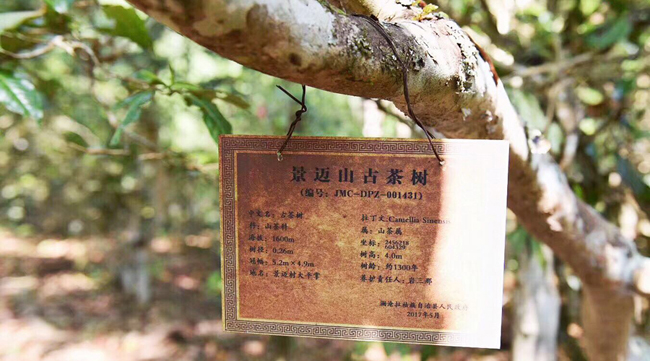 景迈山古茶树
(编号：JMC-DPZ-001431)
中文名：古茶树 拉丁文:Camellia Sinensis
科：山茶科 属：山茶属
海拔：1600m 坐标：2456218 604329
树径：0.26m 树高：4.0m
冠幅：5.2m×4.9m 树龄：约1300年
地名：景迈村大平掌 养护责任人：岩三那
澜沧拉祜族自治县人民政府
2017年5月